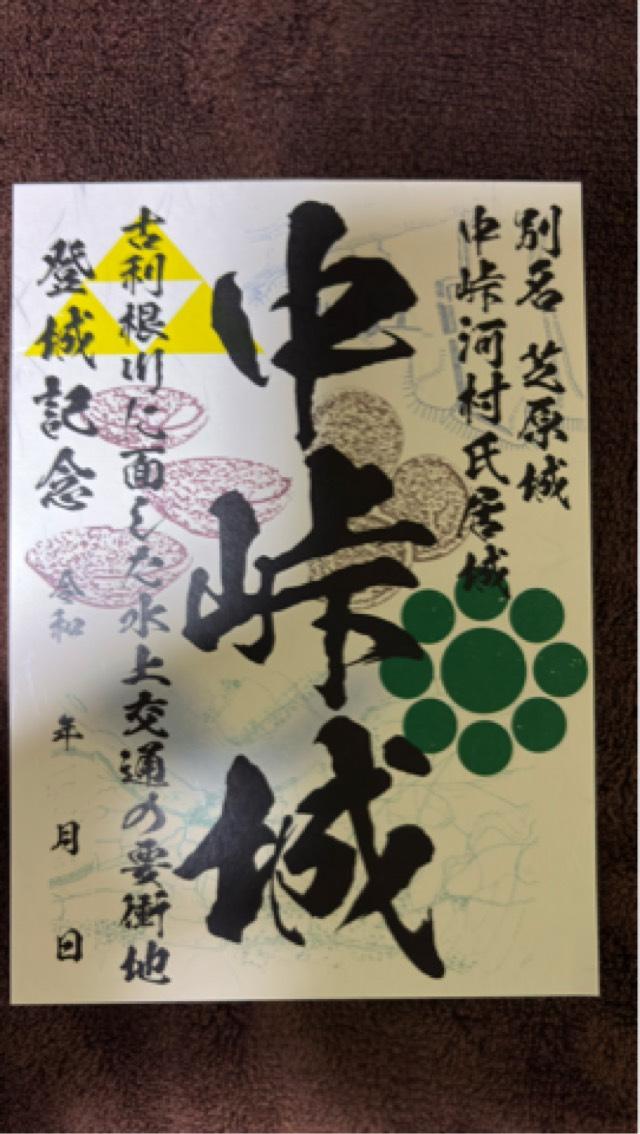 別名 芝原城
中峠河村氏居城
中峠城
古利根川に面した水上交通の要衝地
登城記念
令和 年 月 日